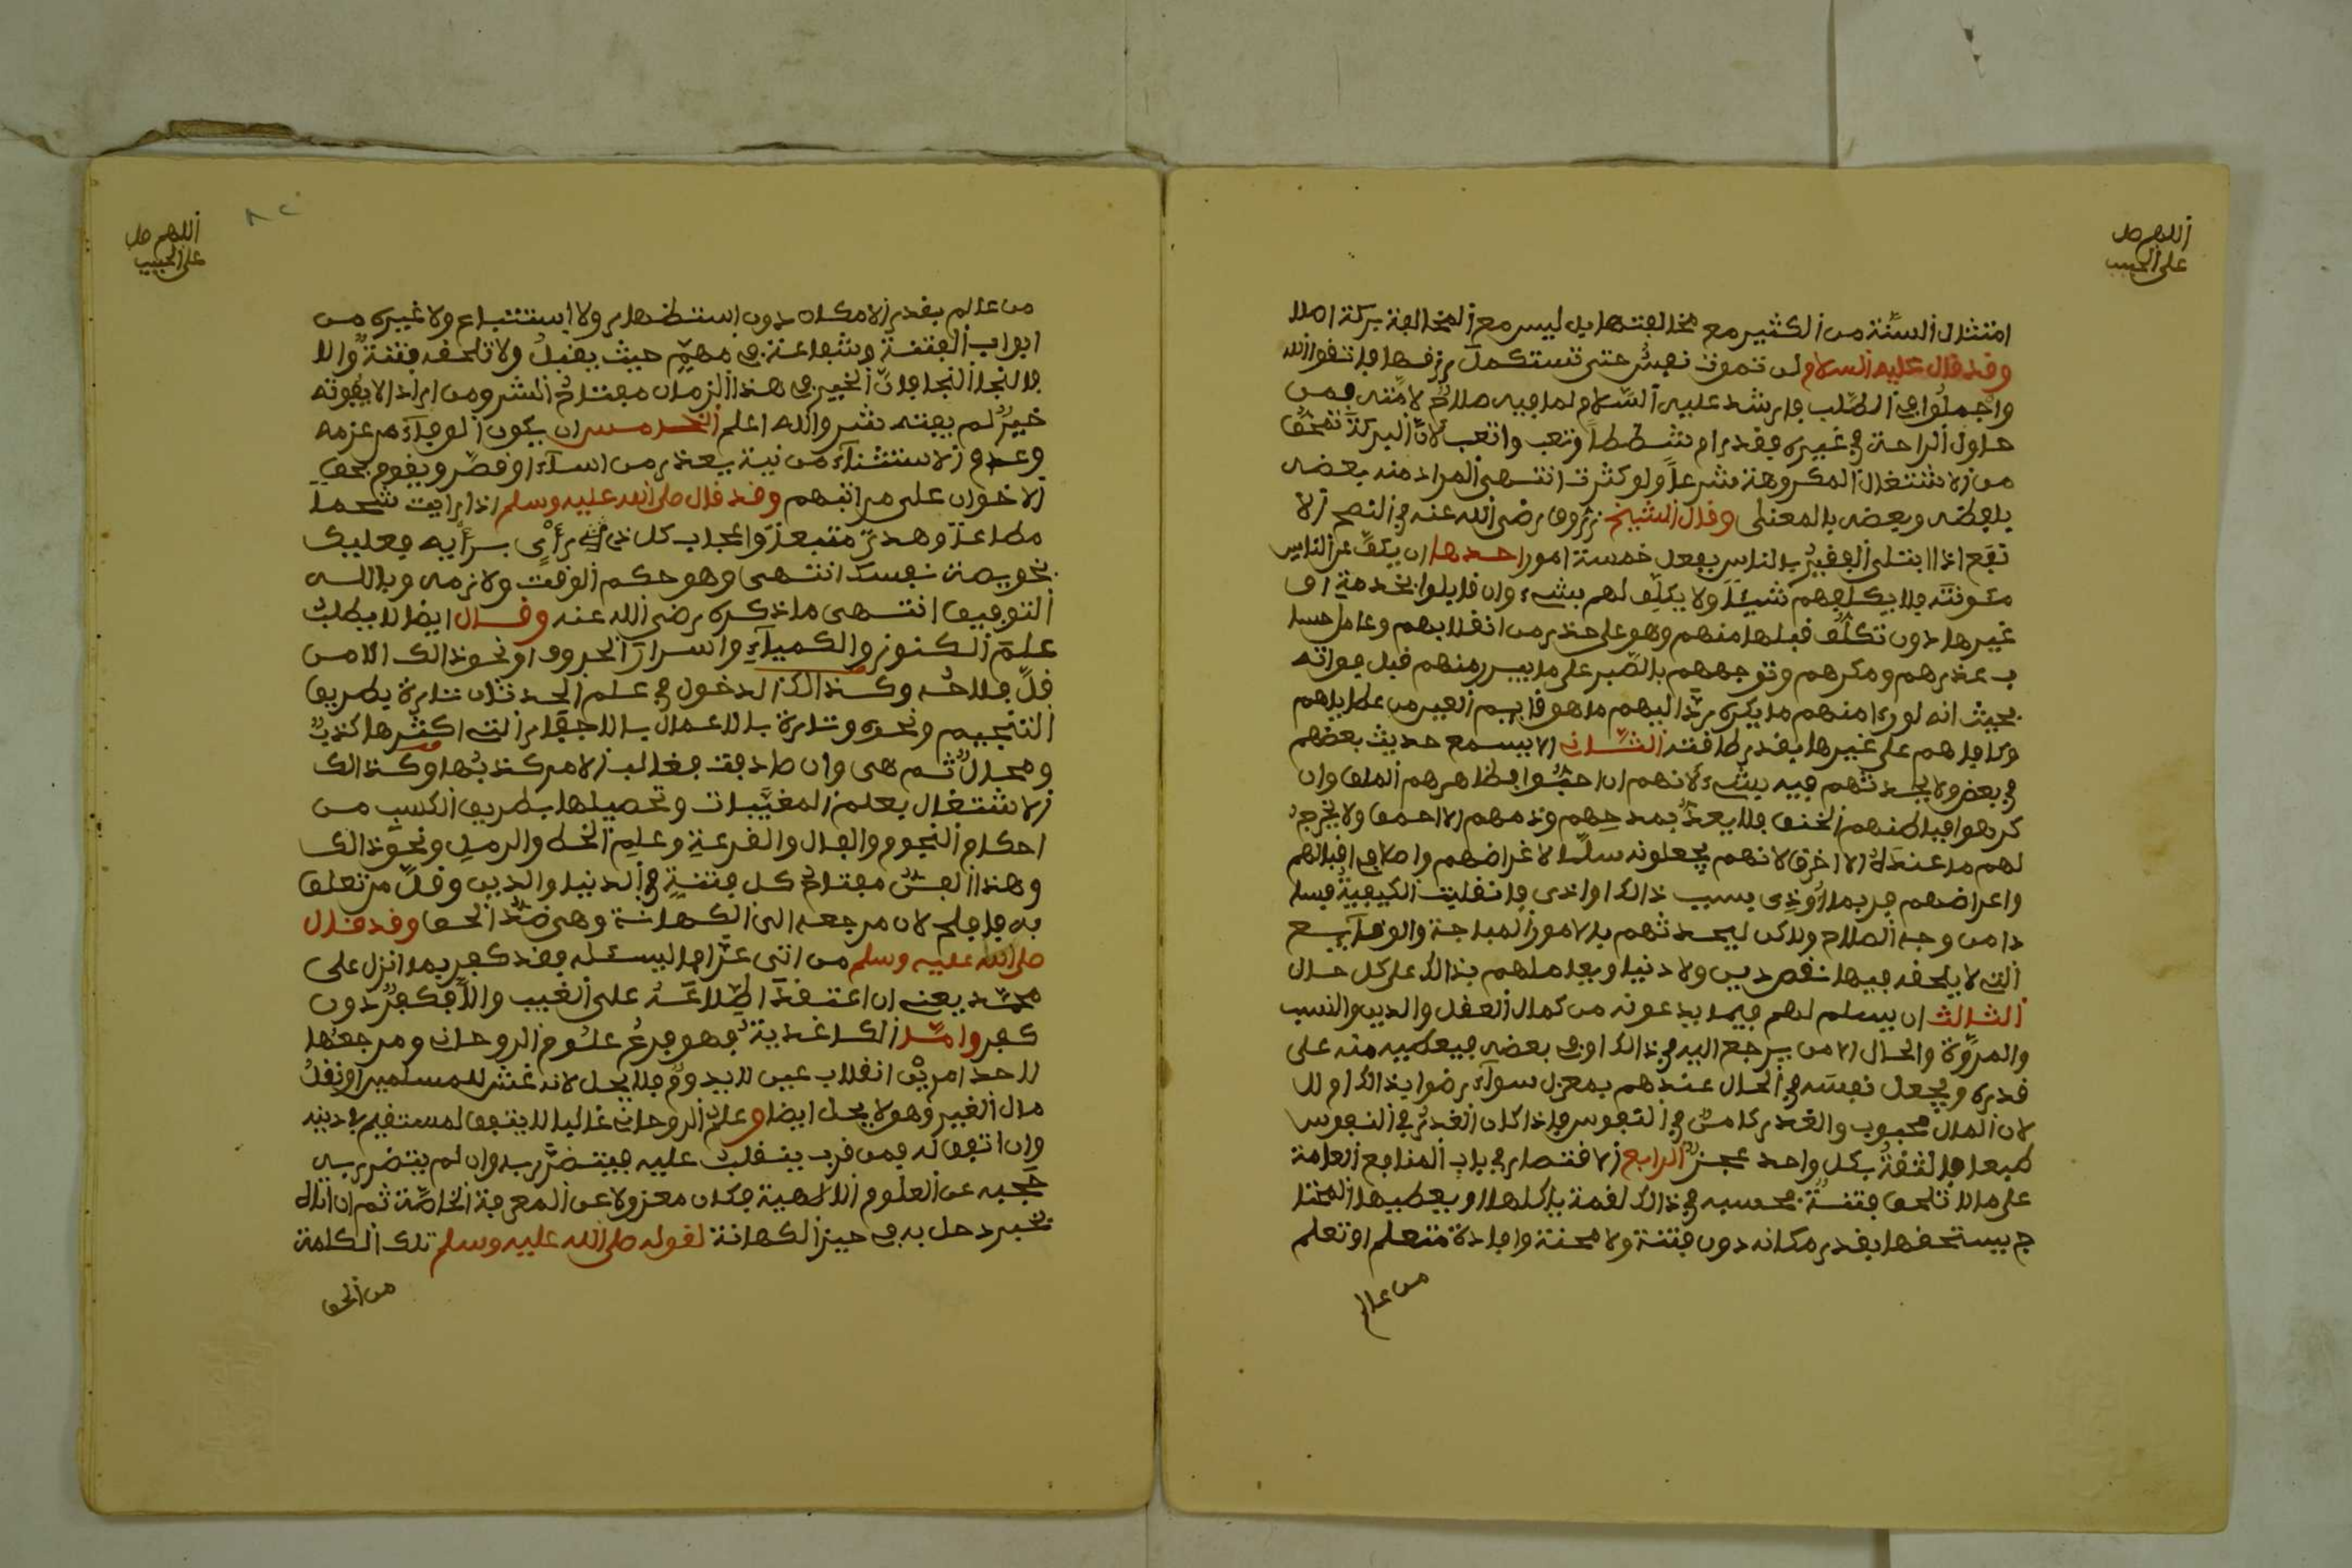 اللهم صل
على الحبيب
امتثال السنة من الكثير مع مخالفتها بل ليس مع المخالفة بركة اصلا
وقد قال عليه السلام لن تموت نفس حتى تستكمل رزقها فاتقوا الله
واجملوا في الطلب فارشد عليه السلام لما فيه صلاح لامته فمن
حاول الراحة في غيره فقد رام شططا وتعب واتعب لان البركة تمحق
من الاشتغال المكروهة شرعا ولو كثرت انتهى المراد منه بعضه
بلفظه وبعضه بالمعنى وقال الشيخ زروق رضي الله عنه في النصح الا
نفع اذا ابتلى الفقير بالناس بفعل خمسة امور احدها ان يكف عن الناس
مئونته فلا يكلفهم شيئا ولا يكلف لهم بشيء وان قابلوا بخدمة او
غيرها دون تكلف قبلها منهم وهو على حذر من انقلابهم وعامل حسا
ب عذرهم ومكرهم وتوجههم بالصبر على ما بيسر منهم قبل فواته
بحيث انه لو رءا منهم ما يكره رد اليهم ما هو قايم الغير من عطاياهم
وكافاهم على غيرها بقدر طاقته الثاني الا يسمع حديث بعضهم
في بعض ولا يحدثهم فيه بشيء لانهم ان احبوا فظاهرهم الملق وان
كرهوا فباطنهم الحنق فلا يعتد بمدحهم وذمهم الا احمق ولا يخرج
لهم ما عنده الا اخرق لانهم يجعلونه سلما لاغراضهم واصلا في اقبالهم
واعراضهم فربما اوذي بسبب ذالك او اذى فانقلبت الكيفية فسا
دا من وجه الصلاح ولاكن ليحدثهم بالامور المباحة والوقآيع
التي لا يلحقه فيها نقص دين ولا دنيا ويعاملهم بذالك على كل حال
الثالث ان يسلم لهم فيما يدعونه من كمال العقل والدين والنسب
والمروة والحال الا من يرجع اليه في ذالك او في بعضه فيعطيه منه على
قدره ويجعل نفسه في الحال عندهم بمعزل سوآء رضوا بذالك او لا
لان المال محبوب والغدر كامن في النفوس فاذا كان الغدر في النفوس
طبعا فالثقة بكل واحد عجز الرابع الاقتصار في باب المنافع العامة
على مالا تلحق فتنة بحسبه في ذالك لقمة ياكلها او يعطيها المحتا
ج يستحقها بقدر مكانه دون فتنة ولا محنة وافادة متعلم او تعلم
من عالم
اللهم صل
على الحبيب
٨٢
من عالم بقدر الامكان دون استظهار ولا استتباع ولا غيره من
ابواب الفتنة وشفاعة في مهم حيث يقبل ولا تلحقه فتنة والا
فالنجا النجا فان الخير في هذا الزمان مفتاح الشر ومن اراد الا يفوته
خير لم يفته شر والله اعلم الخامس ان يكون الوفآء من عزمه
وعدم الاستثنآء من نية يعذر من اسآء او قصر ويقوم بحق
الاخوان على مراتبهم وقد قال صلى الله عليه وسلم اذا رايت شحا
مطاعا وهوى متبعا واعجاب كل ذي رأي برأيه فعليك
بخويصة نفسك انتهى وهو حكم الوقت ولازمه وبالله
التوفيق انتهى ما ذكره رضي الله عنه وقال ايضا لا يطلب
علم الكنوز والكميآء واسرار الحروف او نحو ذالك الا من
قل فلاحه وكذالك الدخول في علم الحدثان تارة بطريق
التنجيم ونحوه وتارة بالاعمال بالاجفار التي اكثرها كذب
ومحال ثم هي وان صادفت فغالب الامر كذبها وكذالك
الاشتغال بعلم المغيبات وتحصيلها بطريق الكسب من
احكام النجوم والفال والقرعة وعلم الخط والرمل ونحو ذالك
وهذا الفن مفتاح كل فتنة في الدنيا والدين وقل من تعلق
به فافلح لان مرجعه الى الكهانة وهي ضد الحق وقد قال
صلى الله عليه وسلم من اتى عرافا ليسئله فقد كفر بما انزل على
محمد يعني ان اعتقد اطلاعه على الغيب والا فكفر دون
كفر واما الكاغدية فهو فرع علوم الروحاني ومرجعها
لاحد امرين انقلاب عين لا يدوم فلا يحل لانه غش للمسلمين او نقل
مال الغير وهو لا يحل ايضا وعلم الروحاني غالبا لا يتفق لمستقيم في دينه
وان اتفق له فمن قرب ينقلب عليه فيتضرر به وان لم يتضرر به
حجبه عن العلوم اللاهية فكان معزولا عن المعرفة الخاصة ثم ان انال
بخبر دخل به في حيز الكهانة لقوله صلى الله عليه وسلم تلك الكلمة
من الحق